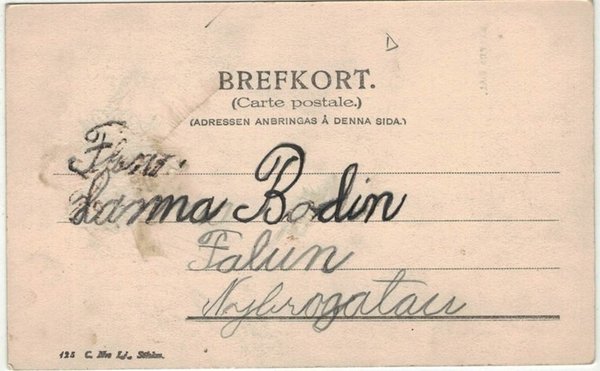 BREFKORT.
(Carte postale.)
(ADRESSEN ANBRINGAS Å DENNA SIDA.)
Hanna Bodin
Falun
Nybrogatan
125 C. Nos Lj., Sthlm.